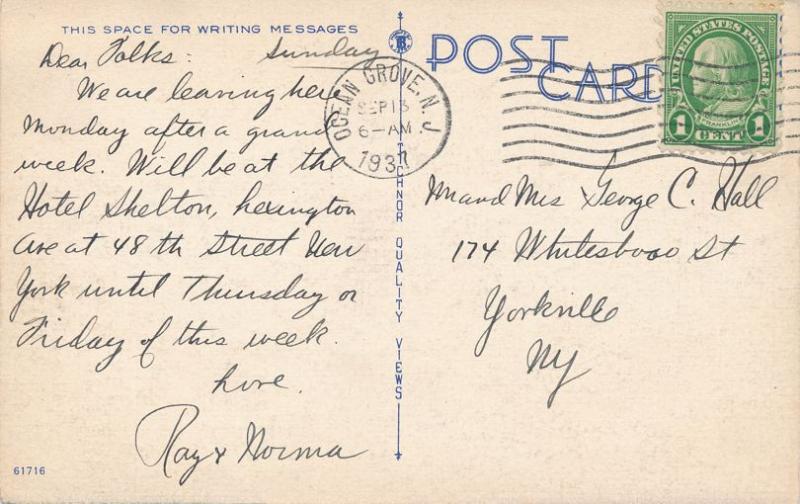 THIS SPACE FOR WRITING MESSAGES
Dear Folks: Sunday
We are leaving here
Monday after a grand
week. Will be at the
Hotel Shelton, Lexington
Ave at 48th Street New
York until Thursday or
Friday of this week.
Love.
Ray & Norma
61716
TECHNOR QUALITY VIEWS
POST
CARD
OCEAN GROVE, N.J.
SEP 13
6-AM
1937
UNITED STATES POSTAGE
FRANKLIN
1 CENT 1
Mr and Mrs George C. Hall
174 Whitesboro St
Yorkville
NY